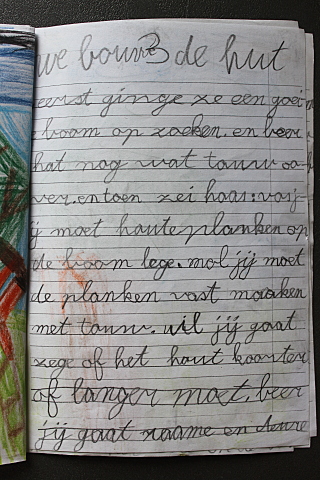 we bouwe de hut
eerst ginge ze een goei
e boom op zoeken. en beer
hat nog wat tauw oo
ver. entoen zei haas: vosj
ij moet houte planken op
de boom lege. mol jij moet
de planken vast maaken
met tauw. uil jij gaat
zege of het hout koorter
of langer moet. beer
jij gaat raame en deure